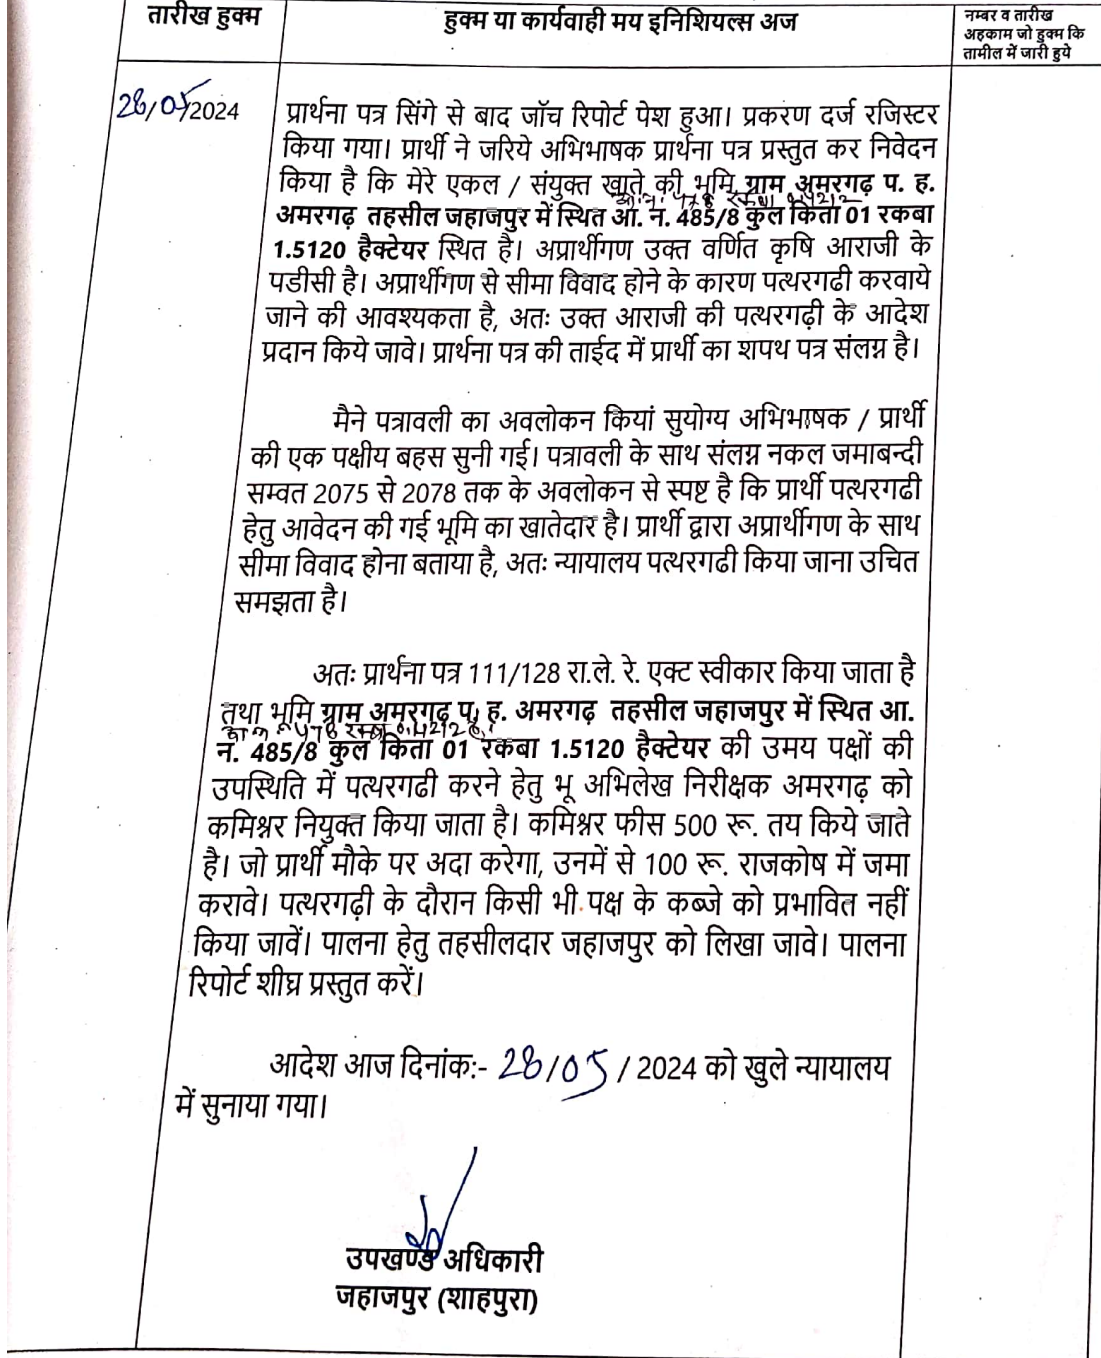 तारीख हुक्म
हुक्म या कार्यवाही मय इनिशियल्स अज
नम्बर व तारीख
अहकाम जो हुक्म कि
तामील में जारी हुये
28/05/2024
प्रार्थना पत्र सिंगे से बाद जॉच रिपोर्ट पेश हुआ। प्रकरण दर्ज रजिस्टर
किया गया। प्रार्थी ने जरिये अभिभाषक प्रार्थना पत्र प्रस्तुत कर निवेदन
किया है कि मेरे एकल / संयुक्त खाते की भूमि ग्राम अमरगढ़ प. ह.
अमरगढ़ तहसील जहाजपुर में स्थित आ. न. 485/8 कुल किता 01 रकबा
1.5120 हैक्टेयर स्थित है। अप्रार्थीगण उक्त वर्णित कृषि आराजी के
पडीसी है। अप्रार्थीगण से सीमा विवाद होने के कारण पत्थरगढी करवाये
जाने की आवश्यकता है, अतः उक्त आराजी की पत्थरगढ़ी के आदेश
प्रदान किये जावे। प्रार्थना पत्र की ताईद में प्रार्थी का शपथ पत्र संलग्न है।
मैने पत्रावली का अवलोकन कियां सुयोग्य अभिभाषक / प्रार्थी
की एक पक्षीय बहस सुनी गई। पत्रावली के साथ संलग्न नकल जमाबन्दी
सम्वत 2075 से 2078 तक के अवलोकन से स्पष्ट है कि प्रार्थी पत्थरगढी
हेतु आवेदन की गई भूमि का खातेदार है। प्रार्थी द्वारा अप्रार्थीगण के साथ
सीमा विवाद होना बताया है, अतः न्यायालय पत्थरगढी किया जाना उचित
समझता है।
अतः प्रार्थना पत्र 111/128 रा.ले. रे. एक्ट स्वीकार किया जाता है
तथा भूमि ग्राम अमरगढ़ प. ह. अमरगढ़ तहसील जहाजपुर में स्थित आ.
न. 485/8 कुल किता 01 रकबा 1.5120 हैक्टेयर की उमय पक्षों की
उपस्थिति में पत्थरगढी करने हेतु भू अभिलेख निरीक्षक अमरगढ़ को
कमिश्नर नियुक्त किया जाता है। कमिश्नर फीस 500 रू. तय किये जाते
है। जो प्रार्थी मौके पर अदा करेगा, उनमें से 100 रू. राजकोष में जमा
करावे। पत्थरगढ़ी के दौरान किसी भी पक्ष के कब्जे को प्रभावित नहीं
किया जावें। पालना हेतु तहसीलदार जहाजपुर को लिखा जावे। पालना
रिपोर्ट शीघ्र प्रस्तुत करें।
आदेश आज दिनांक:- 28/05/2024 को खुले न्यायालय
में सुनाया गया।
उपखण्ड अधिकारी
जहाजपुर (शाहपुरा)